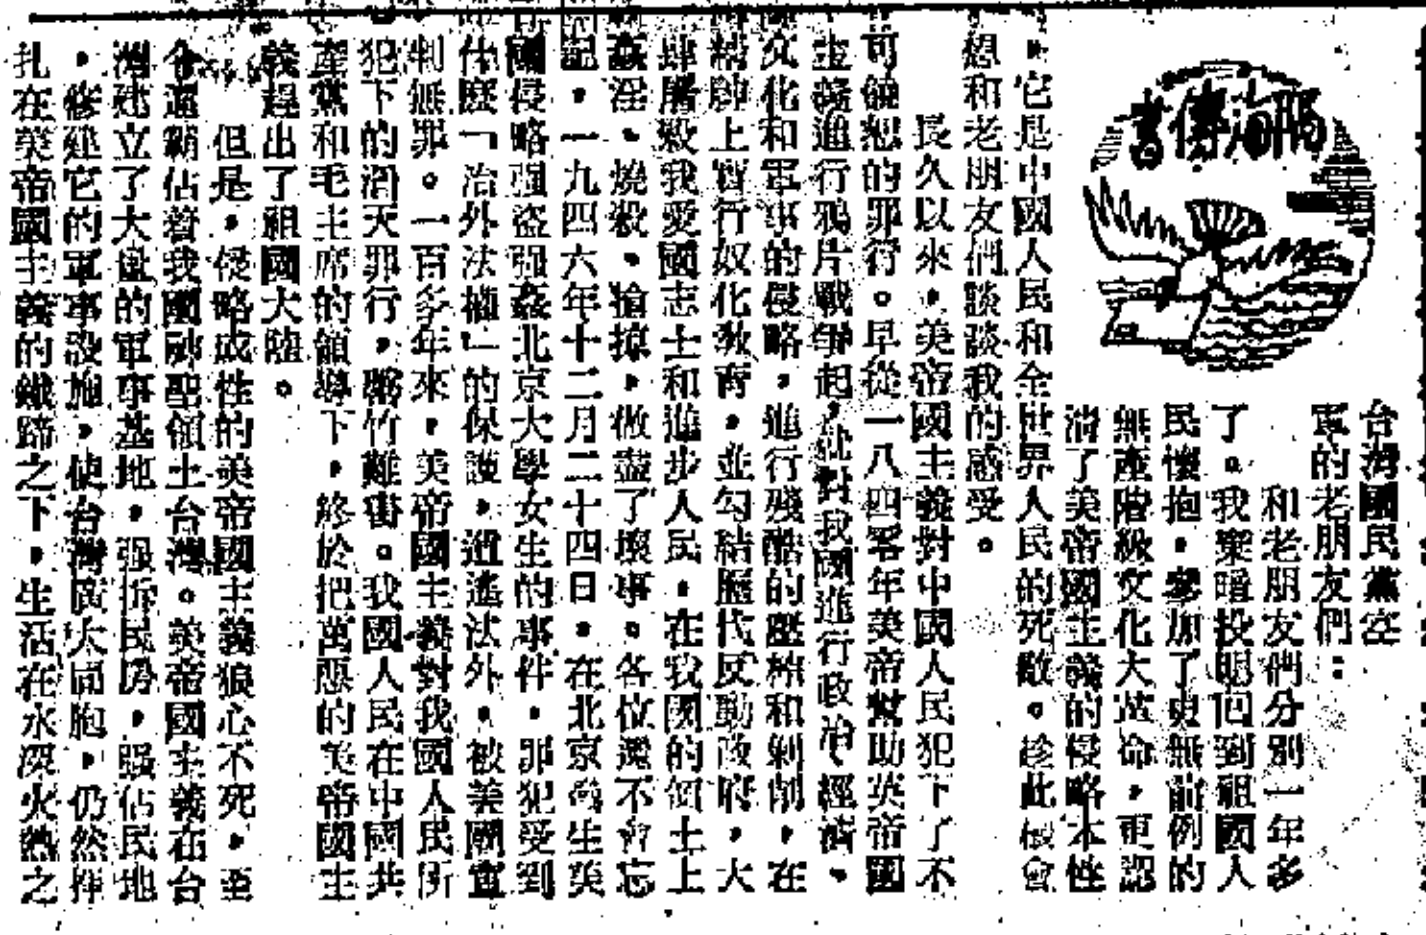 隔海傳書
台灣國民黨空
軍的老朋友們：
和老朋友們分別一年多
了。我棄暗投明回到祖國人
民懷抱，參加了史無前例的
無產階級文化大革命，更認
清了美帝國主義的侵略本性
，它是中國人民和全世界人民的死敵。趁此機會
想和老朋友們談談我的感受。
長久以來，美帝國主義對中國人民犯下了不
可饒恕的罪行。早從一八四零年美帝幫助英帝國
主義進行鴉片戰爭起，就對我國進行政治、經濟、
文化和軍事的侵略，進行殘酷的壓榨和剝削，在
精神上實行奴化教育，並勾結歷代反動政府，大
肆屠殺我愛國志士和進步人民，在我國的領土上
姦淫、燒殺、搶掠，做盡了壞事。各位還不會忘
記，一九四六年十二月二十四日，在北京發生美
國侵略强盜强姦北京大學女生的事件，罪犯受到
什麽「治外法權」的保護，逍遙法外，被美國當
判無罪。一百多年來，美帝國主義對我國人民所
犯下的滔天罪行，罄竹難書。我國人民在中國共
產黨和毛主席的領導下，終於把萬惡的美帝國主
義趕出了祖國大陸。
但是，侵略成性的美帝國主義狼心不死，至
今還霸佔着我國神聖領土台灣。美帝國主義在台
灣建立了大量的軍事基地，强拆民房，强佔民地
，修建它的軍事設施，使台灣廣大同胞，仍然掙
扎在美帝國主義的鐵蹄之下，生活在水深火熱之